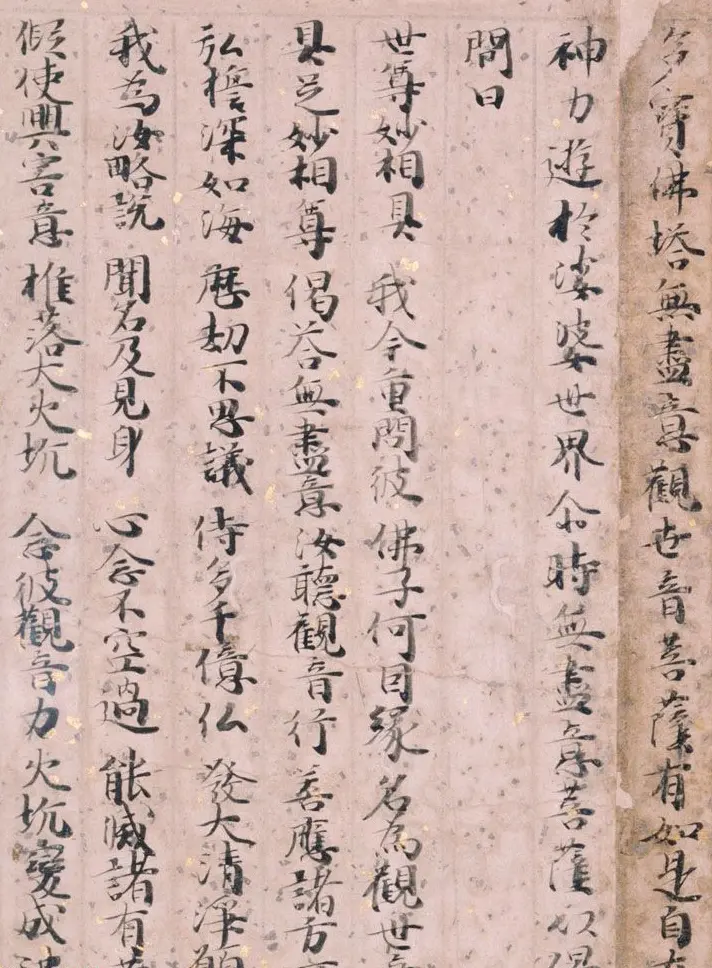 多寶佛塔無盡意觀世音菩薩有如是自在
神力遊於娑婆世界尒時無盡意菩薩以偈
問曰
世尊妙相具 我今重問彼 佛子何因緣 名為觀世音
具足妙相尊 偈荅無盡意 汝聽觀音行 善應諸方
弘誓深如海 歷劫不思議 侍多千億仏 發大清淨願
我為汝略說 聞名及見身 心念不空過 能滅諸有苦
假使興害意 推落大火坑 念彼觀音力 火坑變成池